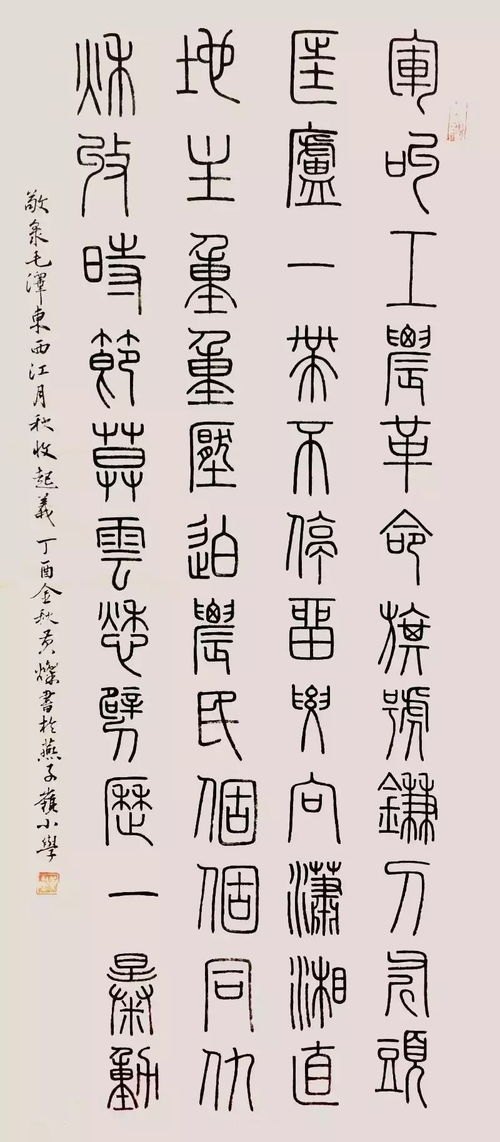 軍叫工農革命旗號鎌刀斧頭
匡廬一帶不停留要向瀟湘直
地主重重壓迫農民個個同仇
秋收時節莫雲愁劈歷一暴動
敬彔毛澤東西江月秋收起義丁酉金秋黃燦書於燕子磯小學